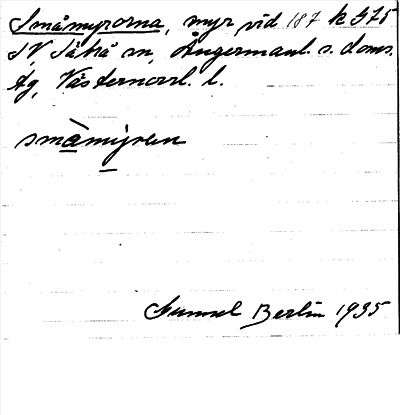 Småmyrorna, myr vid 187 k 575
SV, Såkå sn, Ångermanl. s. doms.
tg, Västernorrl. l.
småmyren
Gunnel Berlin 1935